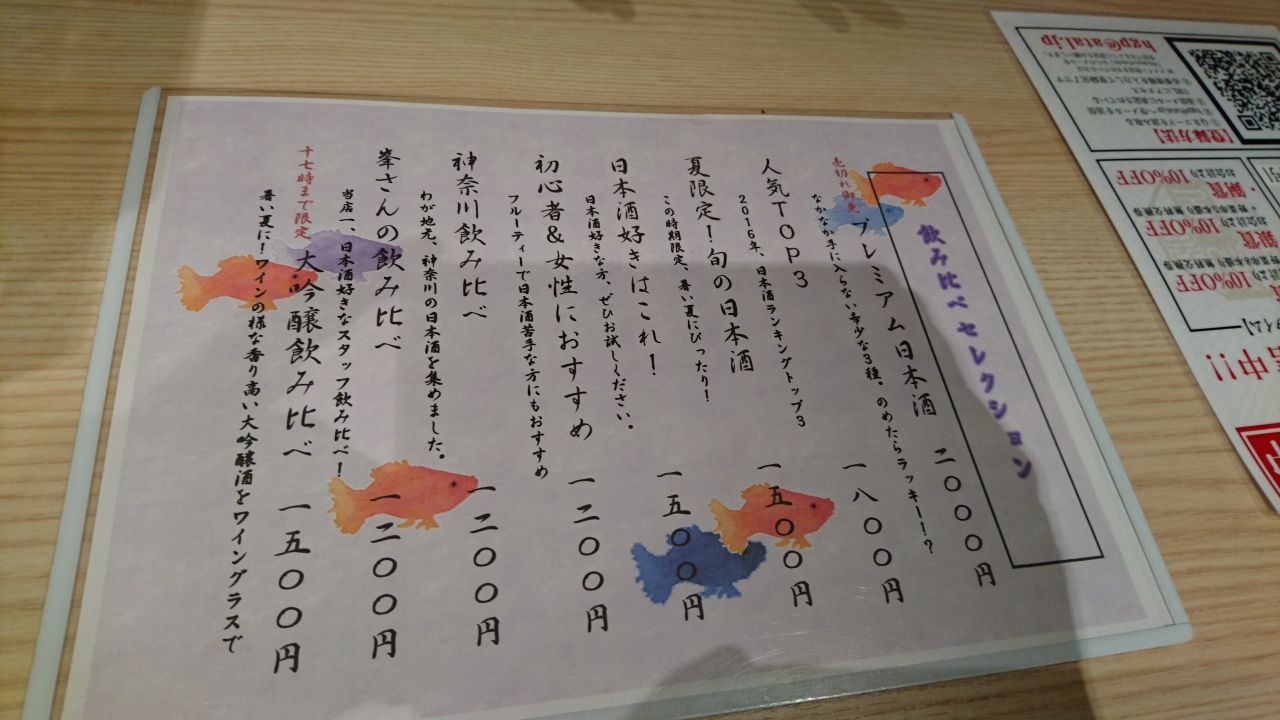 飲み比べセレクション
売切れ御免
プレミアム日本酒 二〇〇〇円
なかなか手に入らない希少な3種。のめたらラッキー!?
人気TOP3 一八〇〇円
2016年、日本酒ランキングトップ3
夏限定!旬の日本酒 一五〇〇円
この時期限定、暑い夏にぴったり!
日本酒好きはこれ! 一五〇〇円
日本酒好きな方、ぜひお試しください。
初心者&女性におすすめ 一二〇〇円
フルーティーで日本酒苦手な方にもおすすめ
神奈川飲み比べ 一二〇〇円
わが地元、神奈川の日本酒を集めました。
峯さんの飲み比べ 一二〇〇円
当店一、日本酒好きなスタッフ飲み比べ!
十七時まで限定
大吟醸飲み比べ 一五〇〇円
暑い夏に!ワインの様な香り高い大吟醸酒をワイングラスで
hgp@atal.jp
【登録方法】
① QRコードを読み取る
・銀賞
お会計より10%OFF
銀賞
お会計より10%OFF
10%OFF
中!!